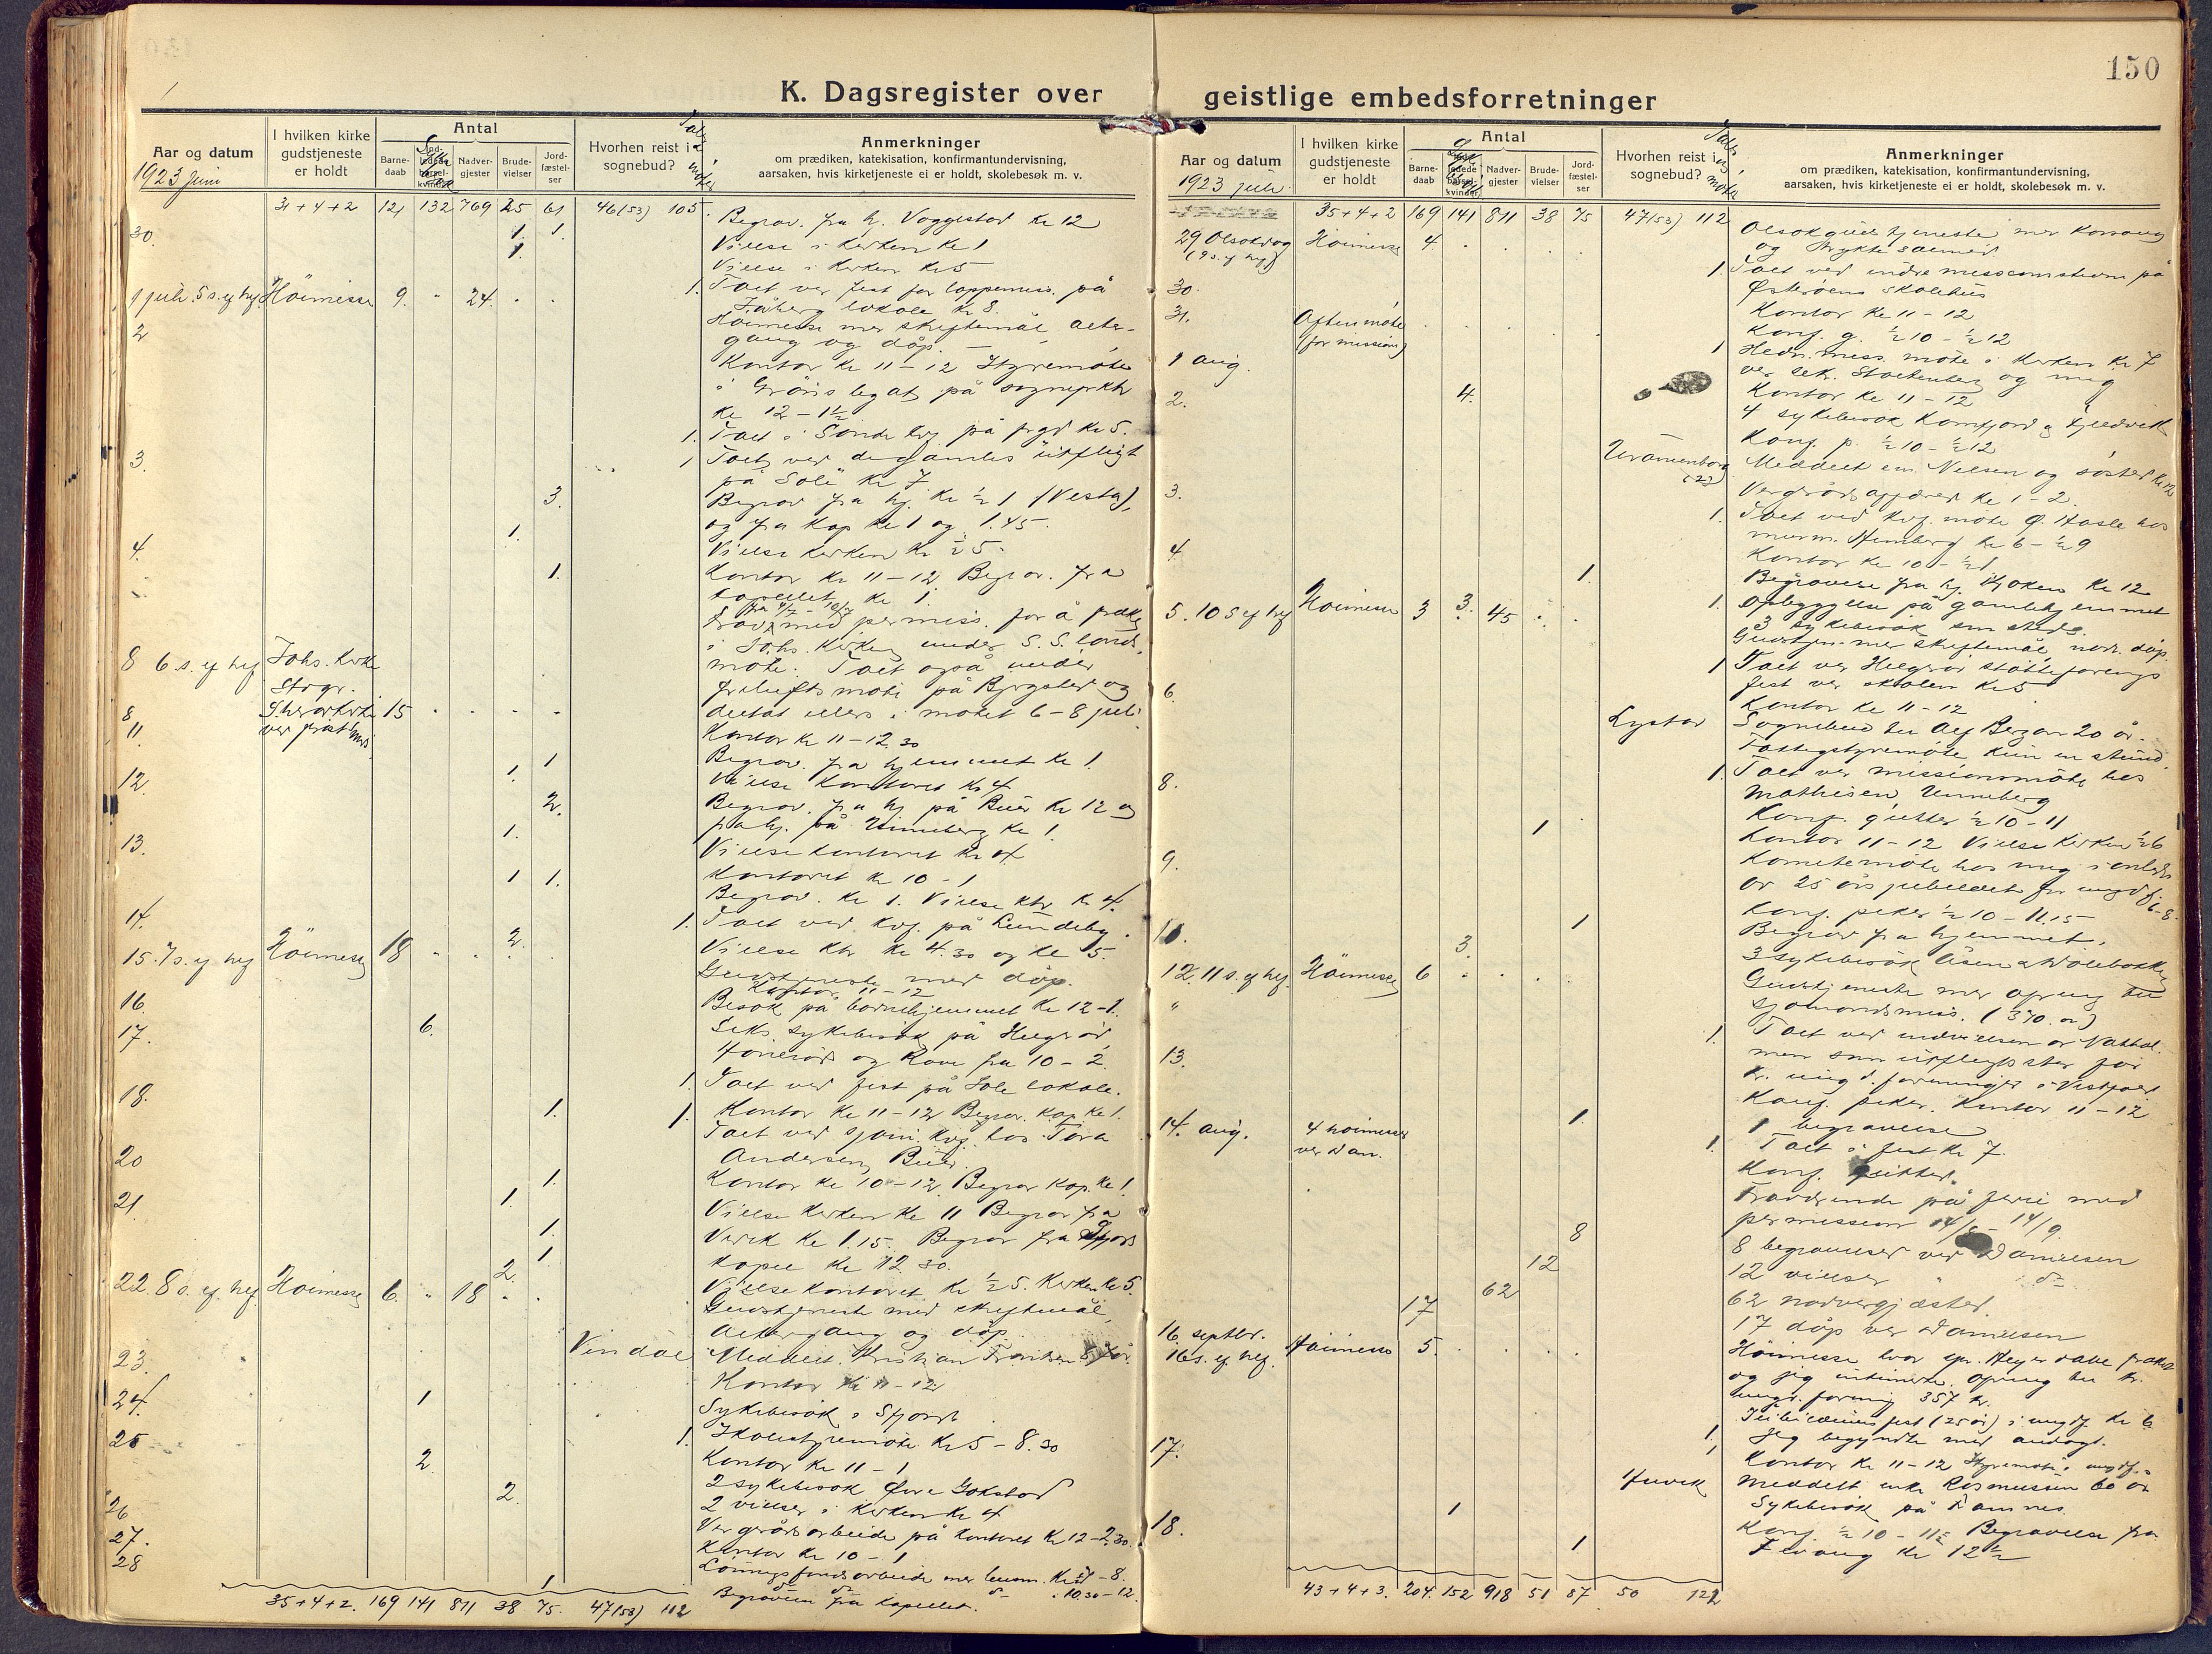 150
K. Dagsregister over
Aar og datum
1923 Juni
I hvilken kirke gudstjeneste er holdt
Antal
Barne-daab
Nadver-gjester
Brude-vielser
Jord-fæstel-ser
Hvorhen reist i sognebud?
Anmerkninger
om prædiken, katekisation, konfirmantundervisning,
aarsaken, hvis kirketjeneste ei er holdt, skolebesøk m. v.
31+4+2 121 132 769 25 61 46(53) 105
30. 1. 1. Begrav. fra h. Voggestad kl 12
1. Vielse i kirken kl 1
Vielse i kirken kl 5
1 juli 5 s. ef hlf. Höimesse 9. " 24. 1. Talt ved fest for lappemiss. på
lokale kl 8.
2 Höimesse med skriftemål, alter-
gang og dåp.
Kontor kl 11-12 Styremöte
i legat på
kl 12-1½
1. Talt i Sande på prgd kl 5.
3. 1 Talt ved de gamles utflugt
på kl 7
3. Begrav fra hj. kl ½ 1 (Vesta),
og fra kap kl 1 og 1.45.
1. Vielse kirken kl ½ 5.
4. 1. Kontor kl 11-12 Begrav. fra
kapellet kl 1.
med permiss. for å præke
8 6 s. ef hlf Johs. kirke i Johs. kirke under S. S. lands-
Stvgr. möte. Talt også under
friluftsmöte på Bjergsted og
8 15 deltat ellers i mötet 6-8 juli
11. Kontor kl 11-12.30
1 Begrav. fra hjemmet kl 1.
12. 1. Vielse kontoret kl 4
2. Begrav. fra hj på Buer kl 12 og
fra hj. på Unneberg kl 1.
13. 1. Vielse kontoret kl 4
Kontoret kl 10-1
1 1. Begrav. kl 1. Vielse ktr kl 4.
14. 1. Talt ved kvf. på Lundeby.
2. Vielse ktr kl 4.30 og kl 5.
15. 7 s. ef hlf Höimesse 18 Gudstjeneste med dåp.
16. Kontor 11-12
Besøk på barnehjemmet kl 12-1.
17. 6. Seks sykebesøk på Helgerød,
og Rove fra 10-2.
1. Talt ved fest på lokale.
18. 1. 1. Kontor kl 11-12 Begrav. kap kl 1.
Talt ved sjöm. kvf. hos Tora
Andersen, Buer.
20 1. Kontor kl 10-12 Begrav kap. kl 1.
21. 1. Vielse kirken kl 11 Begrav fra
1. kl 1.15. Begrav fra
1. kapel kl 12.30.
2. Vielse kontoret kl ½ 5. Kirken kl 5.
22. 8 s. ef. hlf. Höimesse 6. " 18 " Gudstjeneste med skriftemål,
altergang og dåp.
23. Vindal Meddelt Kristian
Kontor kl 11-12
24. 1 Sykebesøk i Sfjord
25 1. Skolestyremöte kl 5-8.30
Kontor kl 11-1
2 2 sykebesøk Gokstad
2. 2 vielser i kirken kl 4
26 Vergerådsarbeide på kontoret kl 12-2.30.
27. Kontor kl 10-1
28
1 Begravelse fra kapellet. 10.30-12.
35+4+2. 169 141 811 38 75. 47(53) 112
geistlige embedsforretninger
Aar og datum
1923 juli
I hvilken kirke gudstjeneste er holdt
Antal
Barne-daab
Nadver-gjester
Brude-vielser
Jord-fæstel-ser
Hvorhen reist i sognebud?
Anmerkninger
om prædiken, katekisation, konfirmantundervisning,
aarsaken, hvis kirketjeneste ei er holdt, skolebesøk m. v.
35+4+2 169 141 811 38 75 47(53) 112
29 Olsokdag Höimesse 4. Olsokgudstjeneste med korsang
(9 s. ef hlf) og trykte salmer.
1. Talt ved indremissionsstevne på
30. Østerøens skolehus
Kontor kl 11-12
31. Aftenmöte Konf. g. ½10-½12
(for mission) 1 Hedn. miss. möte i kirken kl 7
ved sek. Stoltenberg og mig
1 aug. Kontor kl 11-12
2. 4. 4 sykebesøk Kamfjord og
Konf. p. ½10-½12
Uranienborg Meddelt em. Nilsen og søster
3. Vergerådsaffærer kl 1-2.
1. Talt ved kvf. möte Ø. Hasle hos
kl 6-½9
4. Kontor kl 10-½1
1. Begravelse fra hj. kl 12
1. Opbyggelse på gamlehjemmet
3. 3 sykebesøk sm steds.
5. 10 s ef hlf Höimesse 3 45 Gudstjen. med skriftemål, nadv. dåp.
1 Talt ved Helgerød støtteforenings
fest ved skolen kl 5
6. Kontor kl 11-12
Lystad Sognebud til Alf Berzan 20 år.
Fattigstyremöte kun en stund.
1. Talt ved missionsmöte hos
8. Mathisen, Unneberg
Konf. gutter ½10-11
1 Kontor 11-12 Vielse kirken ½6
9. Komitemöte hos mig i anledn.
av 25 års jubilæet for ungdf. 6-8.
Konf. piker ½10-11.15
11. 1 Begrav fra hjemmet.
3. 3 sykebesøk Åsen
12. 11 s. ef hlf. Höimesse 6 Gudstjeneste med opring til
sjömandsmiss. (370.00)
1. Talt ved indvielsen av
13. men som utflugtssted for
kr. ungd. foreninger i Vestfold
Konf. piker. Kontor 11-12
14. aug. 4 höimesser 1. 1 begravelse
ved Dan. 1. Talt i fest kl 7.
Konf. gutter.
Fraværende på ferie med
permission 14/8-14/9.
8 8 begravelser ved Danielsen
12 12 vielser " do
62 62 nadvergjæster.
17 17 dåp ved Danielsen
16. septbr. Höimesse 5. Höimesse hvor præket
16 s. ef hlf. og jeg intimerte. Opring til kr.
ungd. forening 357 kr.
1. Jubilæumsfest (25 år) i ungdf. kl 6
Jeg begyndte med andagt.
17. 1 Kontor kl 11-12 Styremöte i ungdf.
Meddelt enke Rasmussen 60 år
1 Sykebesøk på Framnes
18. Konf. ½10-11½ Begravelse fra
1 kl 12½
43+4+3. 204. 152 918 51 87 50 122